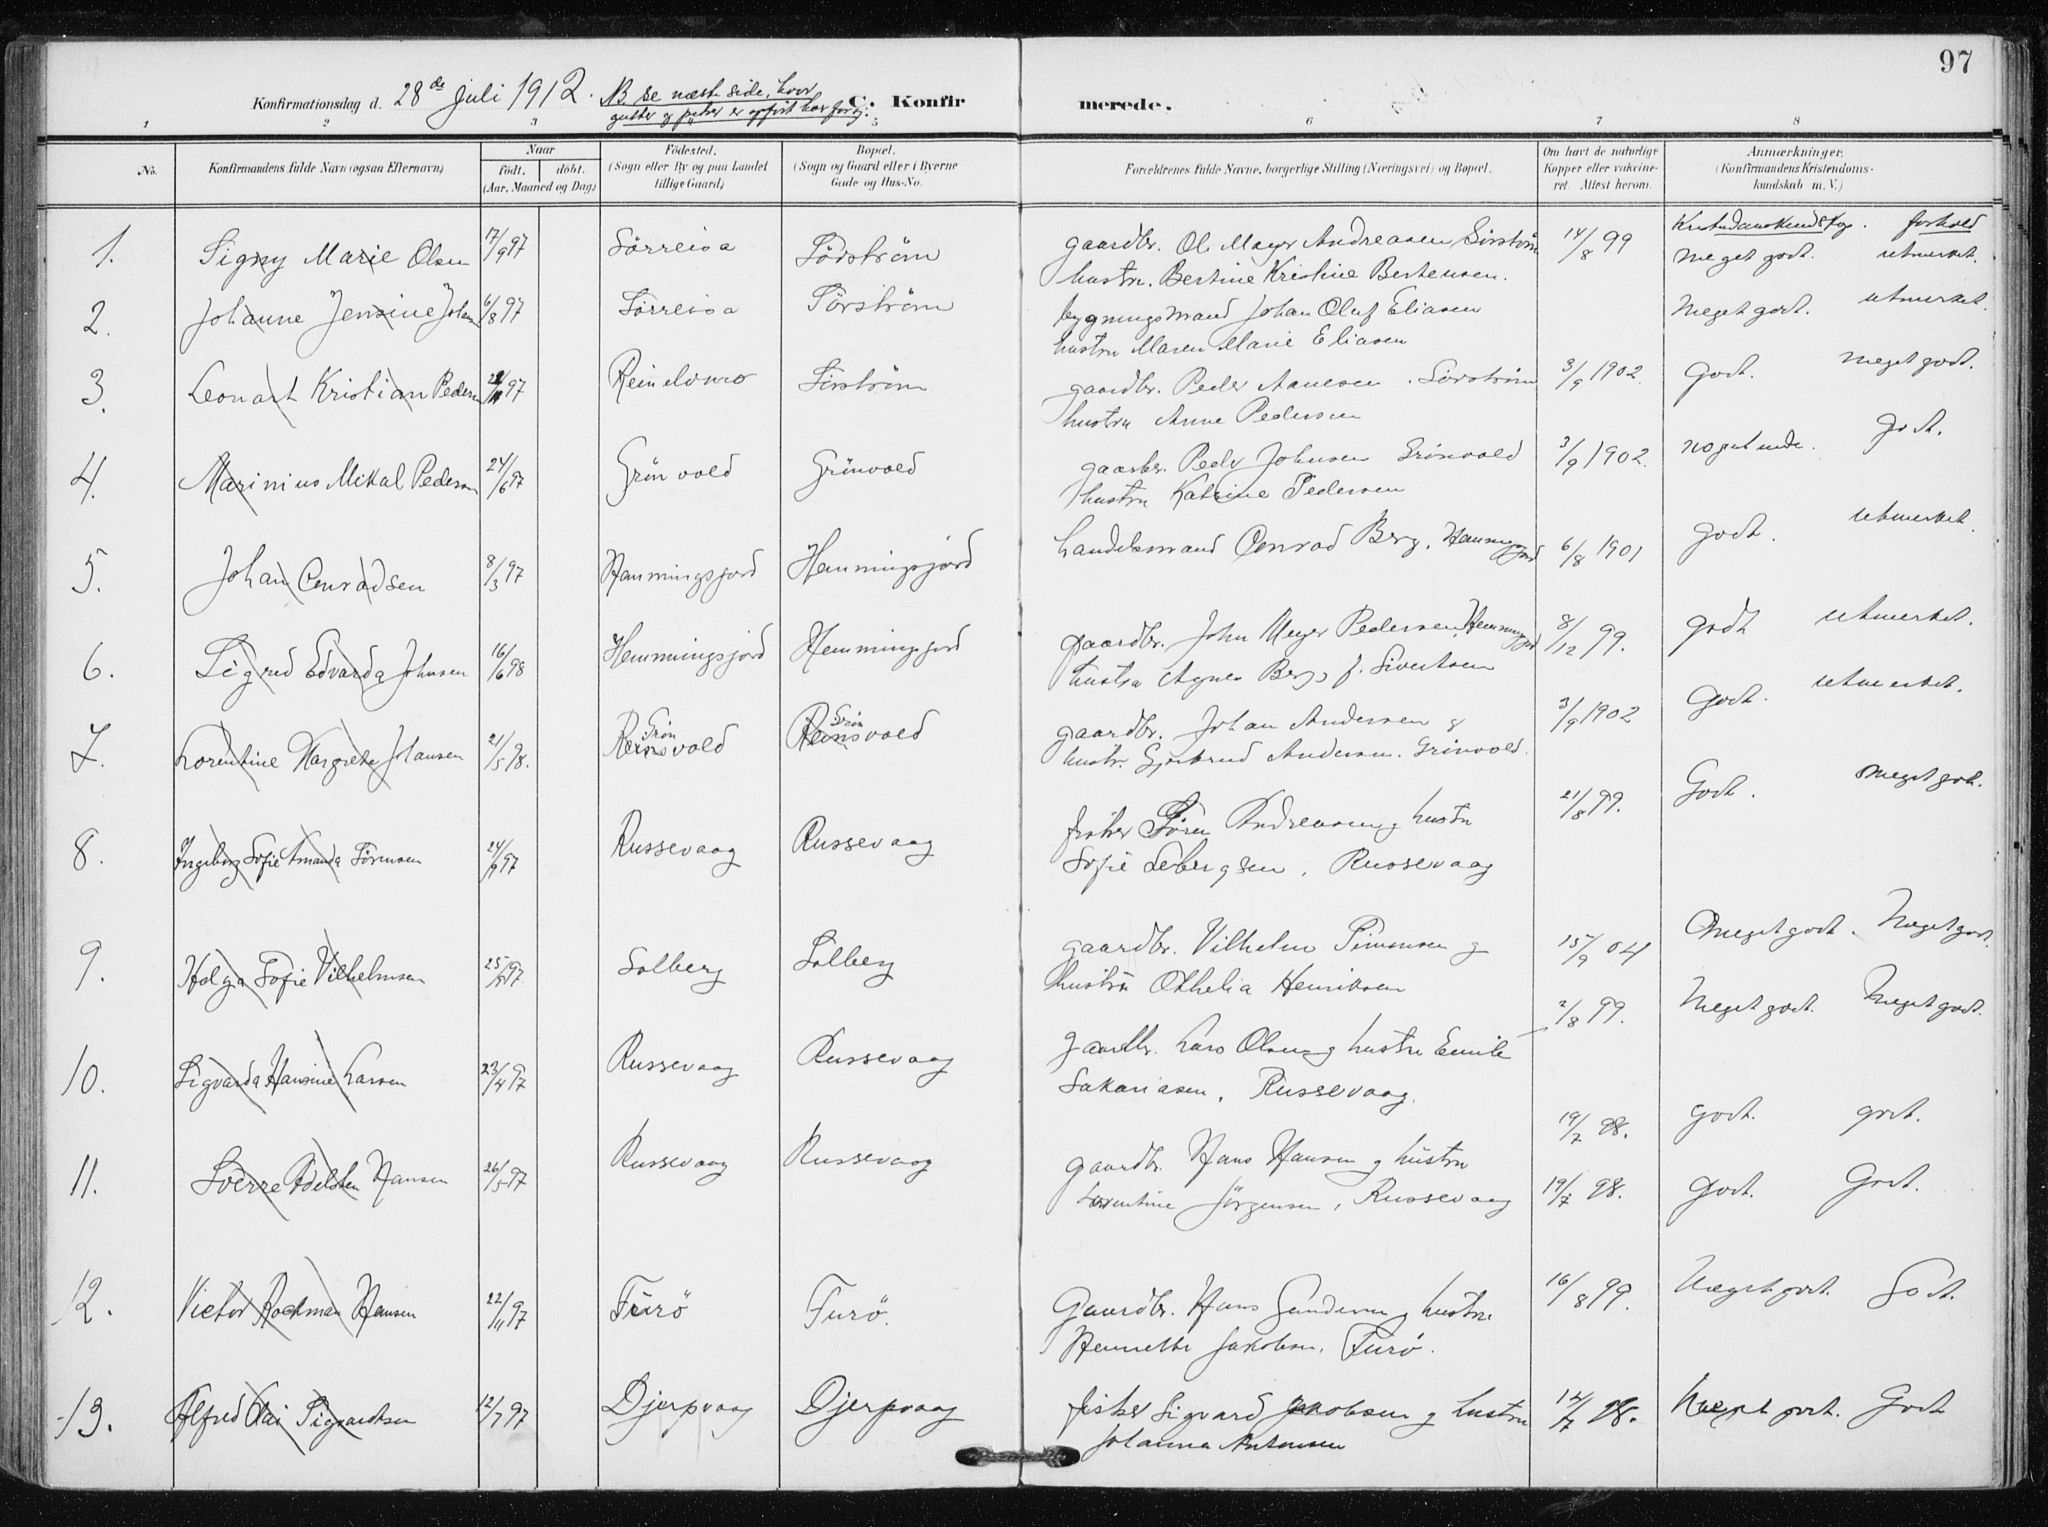 97
Konfirmationsdag d. 28de Juli 1912. NB se næste side, hvor
gutter og piker er opført hver for sig.
C. Konfirmerede.
1 2 3 5 6 7 8
No. Konfirmandens fulde Navn (ogsaa Efternavn) Naar Fødested. Bopæl. Forældrenes fulde Navne, borgerlige Stilling (Næringsvei) og Bopæl. Om havt de naturlige Anmærkninger.
født. døbt. (Sogn eller By og paa Landet (Sogn og Gaard eller i Byerne Kopper eller vakcine- (Konfirmandens Kristendoms-
(Aar, Maaned og Dag) tillige Gaard) Gade og Hus-No. ret. Attest herom. kundskab m. V.)
Kristendomskundskap. forhold
1. Signy Marie Olsen 17/9 97 Sørreisa Sørstrøm gaardbr. Ole Meyer Andreasen Sørstrøm 14/8 99 meget godt. utmerket.
hustru. Bertine Kristine Bertensen.
2. Johanne Jensine Johans 6/8 97 Sørreisa Sørstrøm bygningsmand Johan Oluf Eliasen Meget godt. utmerket.
hustru Maren Marie Eliasen
3. Leonart Kristian Pedersen 97 Sørstrøm gaardbr. Peder Sørstrøm 3/9 1902. godt. meget godt.
hustru Anne Pedersen
4. Marinius Mikal Pedersen 24/6 97 Grønvold Grønvold gaardbr. Peder Johnsen Grønvold 3/9 1902. noget mdr. godt.
hustru Katrine Pedersen
5. Johan Conradsen 8/3 97 Hemmingsjord Hemmingsjord handelsmand Conrad Berg, Hemmingsjord 6/8 1901 godt. utmerket.
6. Sigred Edvarda Johnsen 16/6 98 Hemmingsjord Hemmingsjord gaardbr. John Meyer Pedersen, Hemmingsjord 8/12 99. godt utmerket.
hustru Agnes Berg, f. Sivertsen
7. Lorentine Margrete Johansen 21/5 98. Grønvold Grønvold gaardbr. Johan Andersen & 3/9 1902 godt. utmerket.
hustr. Gjertrud Andersen. Grønvold.
8. Ingeborg Sofie Amanda Sørensen 24/9 97 Russevaag Russevaag fisker Søren Andreasen og hustru 21/8 99. Godt. meget godt.
Sofie Sebergsen, Russevaag
9. Helga Sofie Vilhelmsen 25/9 97 Solberg Solberg gaardbr. Vilhelm Simonsen og 15/9 04 Meget godt. Meget godt.
hustru Othelia Henriksen
10. Sigvarda Hansine Larsen 23/4 97 Russevaag Russevaag gaardbr. Lars Olsen og hustru Emilie 2/8 99. Meget godt. Meget godt.
Sakariasen, Russevaag.
19/7 98. godt. godt.
11. Sverre Adelsten Hansen 26/5 97 Russevaag Russevaag gaardbr. Hans Hansen og hustru
Lorentine Jørgensen, Russevaag 19/7 98. godt. Godt.
12. Victor Rockman Hansen 22/11 97 Furø Furø. Gaardbr. Hans Gundersen og hustru 16/8 99. Meget godt. Godt.
Henriette Jakobsen, Furø.
13. Alfred Kai Sigvardsen 12/7 97 Djerpvaag Djerpvaag fisker Sigvard Jakobsen og hustru 14/7 98. Meget godt. Godt
Johanna Antonsen